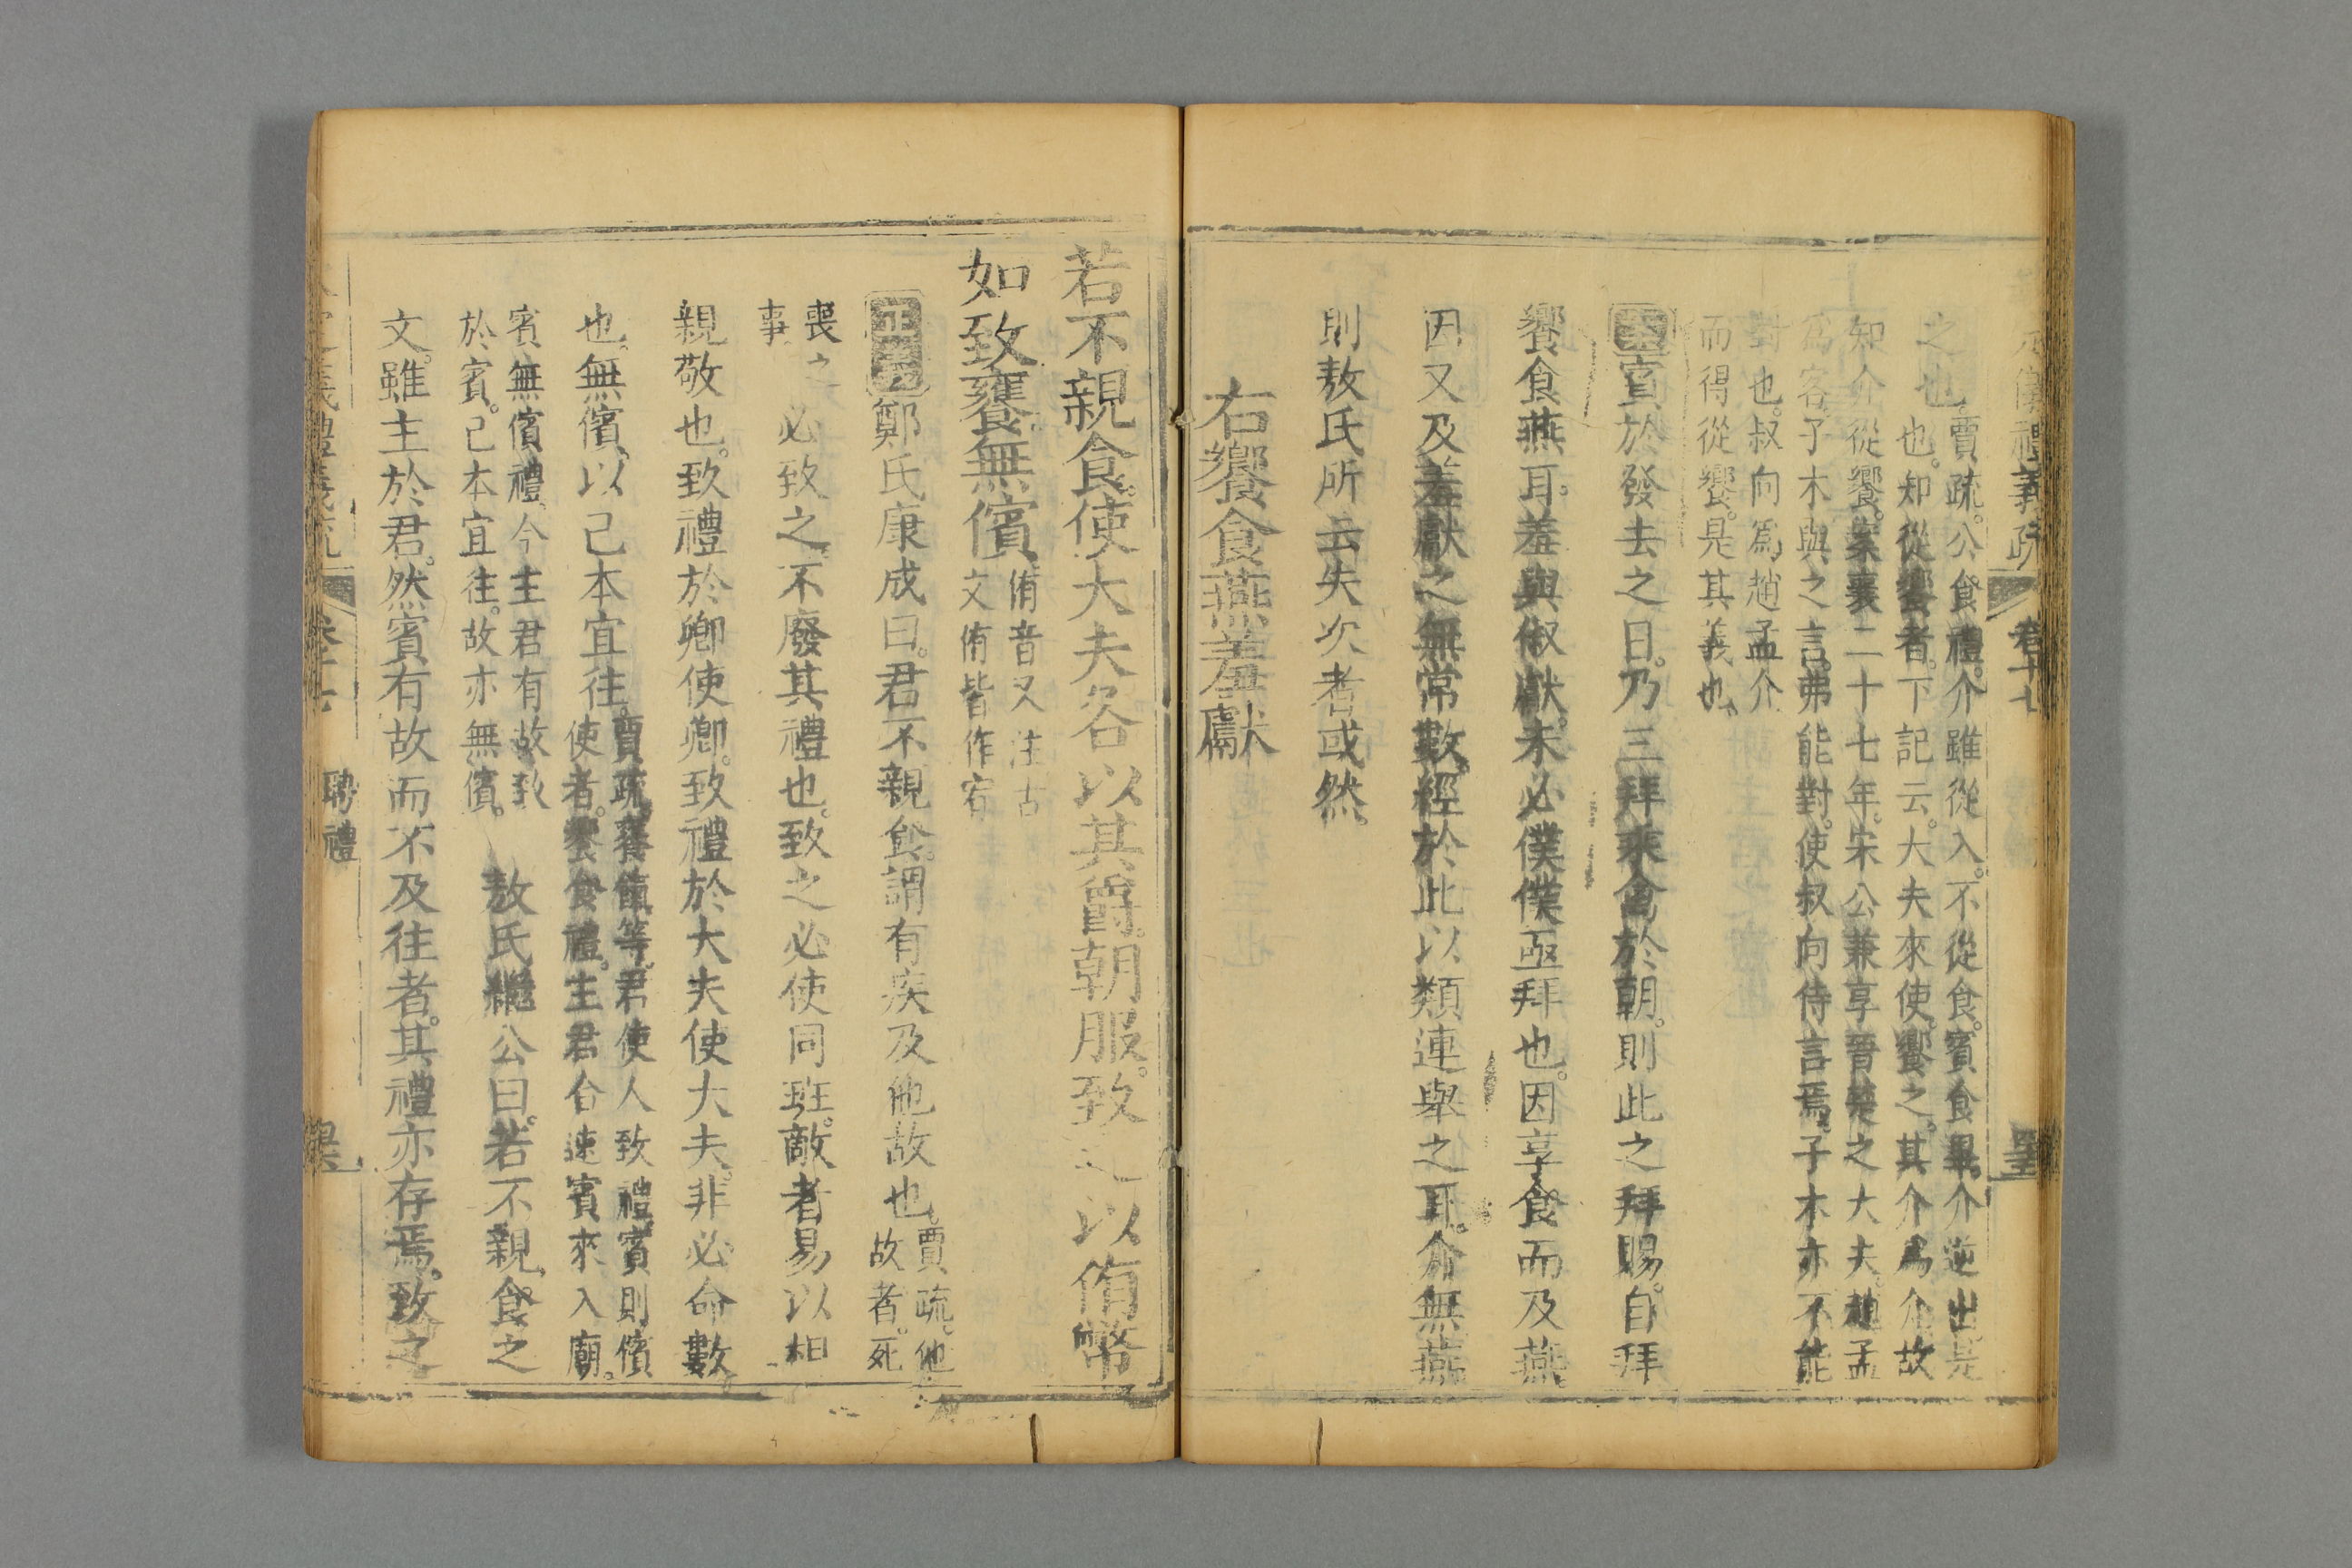 儀禮義疏 卷十七
之也
賈疏。公食禮。介雖從入。不從食。賓食畢。介逆出。是
也。知從饗者。下記云。大夫來使。饗之。其介爲介。故
知介從饗。案襄二十七年。宋公兼享晉楚之大夫。趙孟
爲客。子木與之言。弗能對。使叔向侍言焉。子木亦不能
對也。叔向爲趙孟介
而得從饗。是其義也。
賓於發去之日。乃三拜乘禽於朝。則此之拜賜。自拜
饗食燕耳。羞與俶獻。未必僕僕亟拜也。因享食而及燕。
因又及羞獻之無常數。經於此以類連舉之耳。介無燕
則敖氏所云失次者或然。
右饗食燕羞獻
若不親食。使大夫各以其爵朝服。致之以侑幣
如致饔無儐
侑音又注古
文侑皆作宥
正義鄭氏康成曰。君不親食。謂有疾及他故也。
賈疏。他
故者。死
喪之
事
必致之。不廢其禮也。致之必使同班。敵者易以相
親敬也。致禮於卿使卿。致禮於大夫使大夫。非必命數
也。無儐。以己本宜往。
賈疏。饔餼等。君使人致禮。賓則儐
使者。饗食禮。主君合速賓來入廟。
賓無儐禮。今主君有故。致
於賓。己本宜往。故亦無儐。
敖氏繼公曰。若不親食之
文。雖主於君。然賓有故而不及往者。其禮亦存焉。致之
聘禮